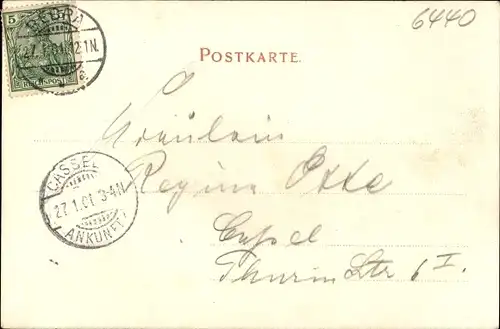 6440
5
REICHSPOST
BEBRA
27.1.01.12-1N.
POSTKARTE.
Fräulein
Regina Otto
Cassel
CASSEL
27.1.01 3-4N
ANKUNFT
Str 6 I.